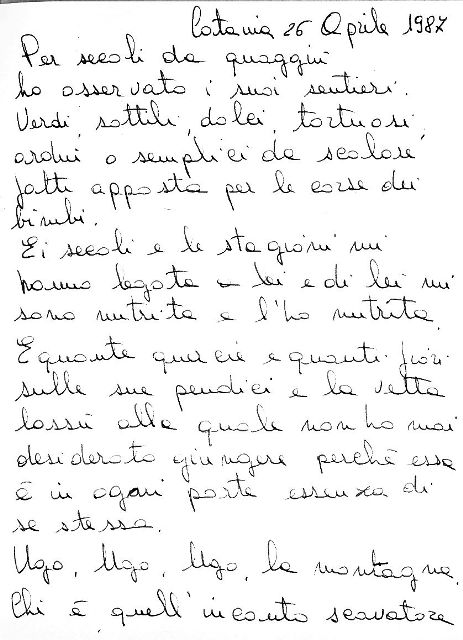 Catania 26 Aprile 1987
Per secoli da quaggiù
ho osservato i suoi sentieri.
Verdi, sottili, dolci, tortuosi,
ardui o semplici da scalare
fatti apposta per le corse dei
bimbi.
E i secoli e le stagioni mi
hanno legata a lei e di lei mi
sono nutrita e l'ho nutrita.
E quante quercie e quanti fiori
sulle sue pendici e la vetta
lassù alla quale non ho mai
desiderato giungere perchè essa
è in ogni parte essenza di
se stessa.
Ugo, Ugo, Ugo, la montagna.
Chi è quell'incauto scavatore